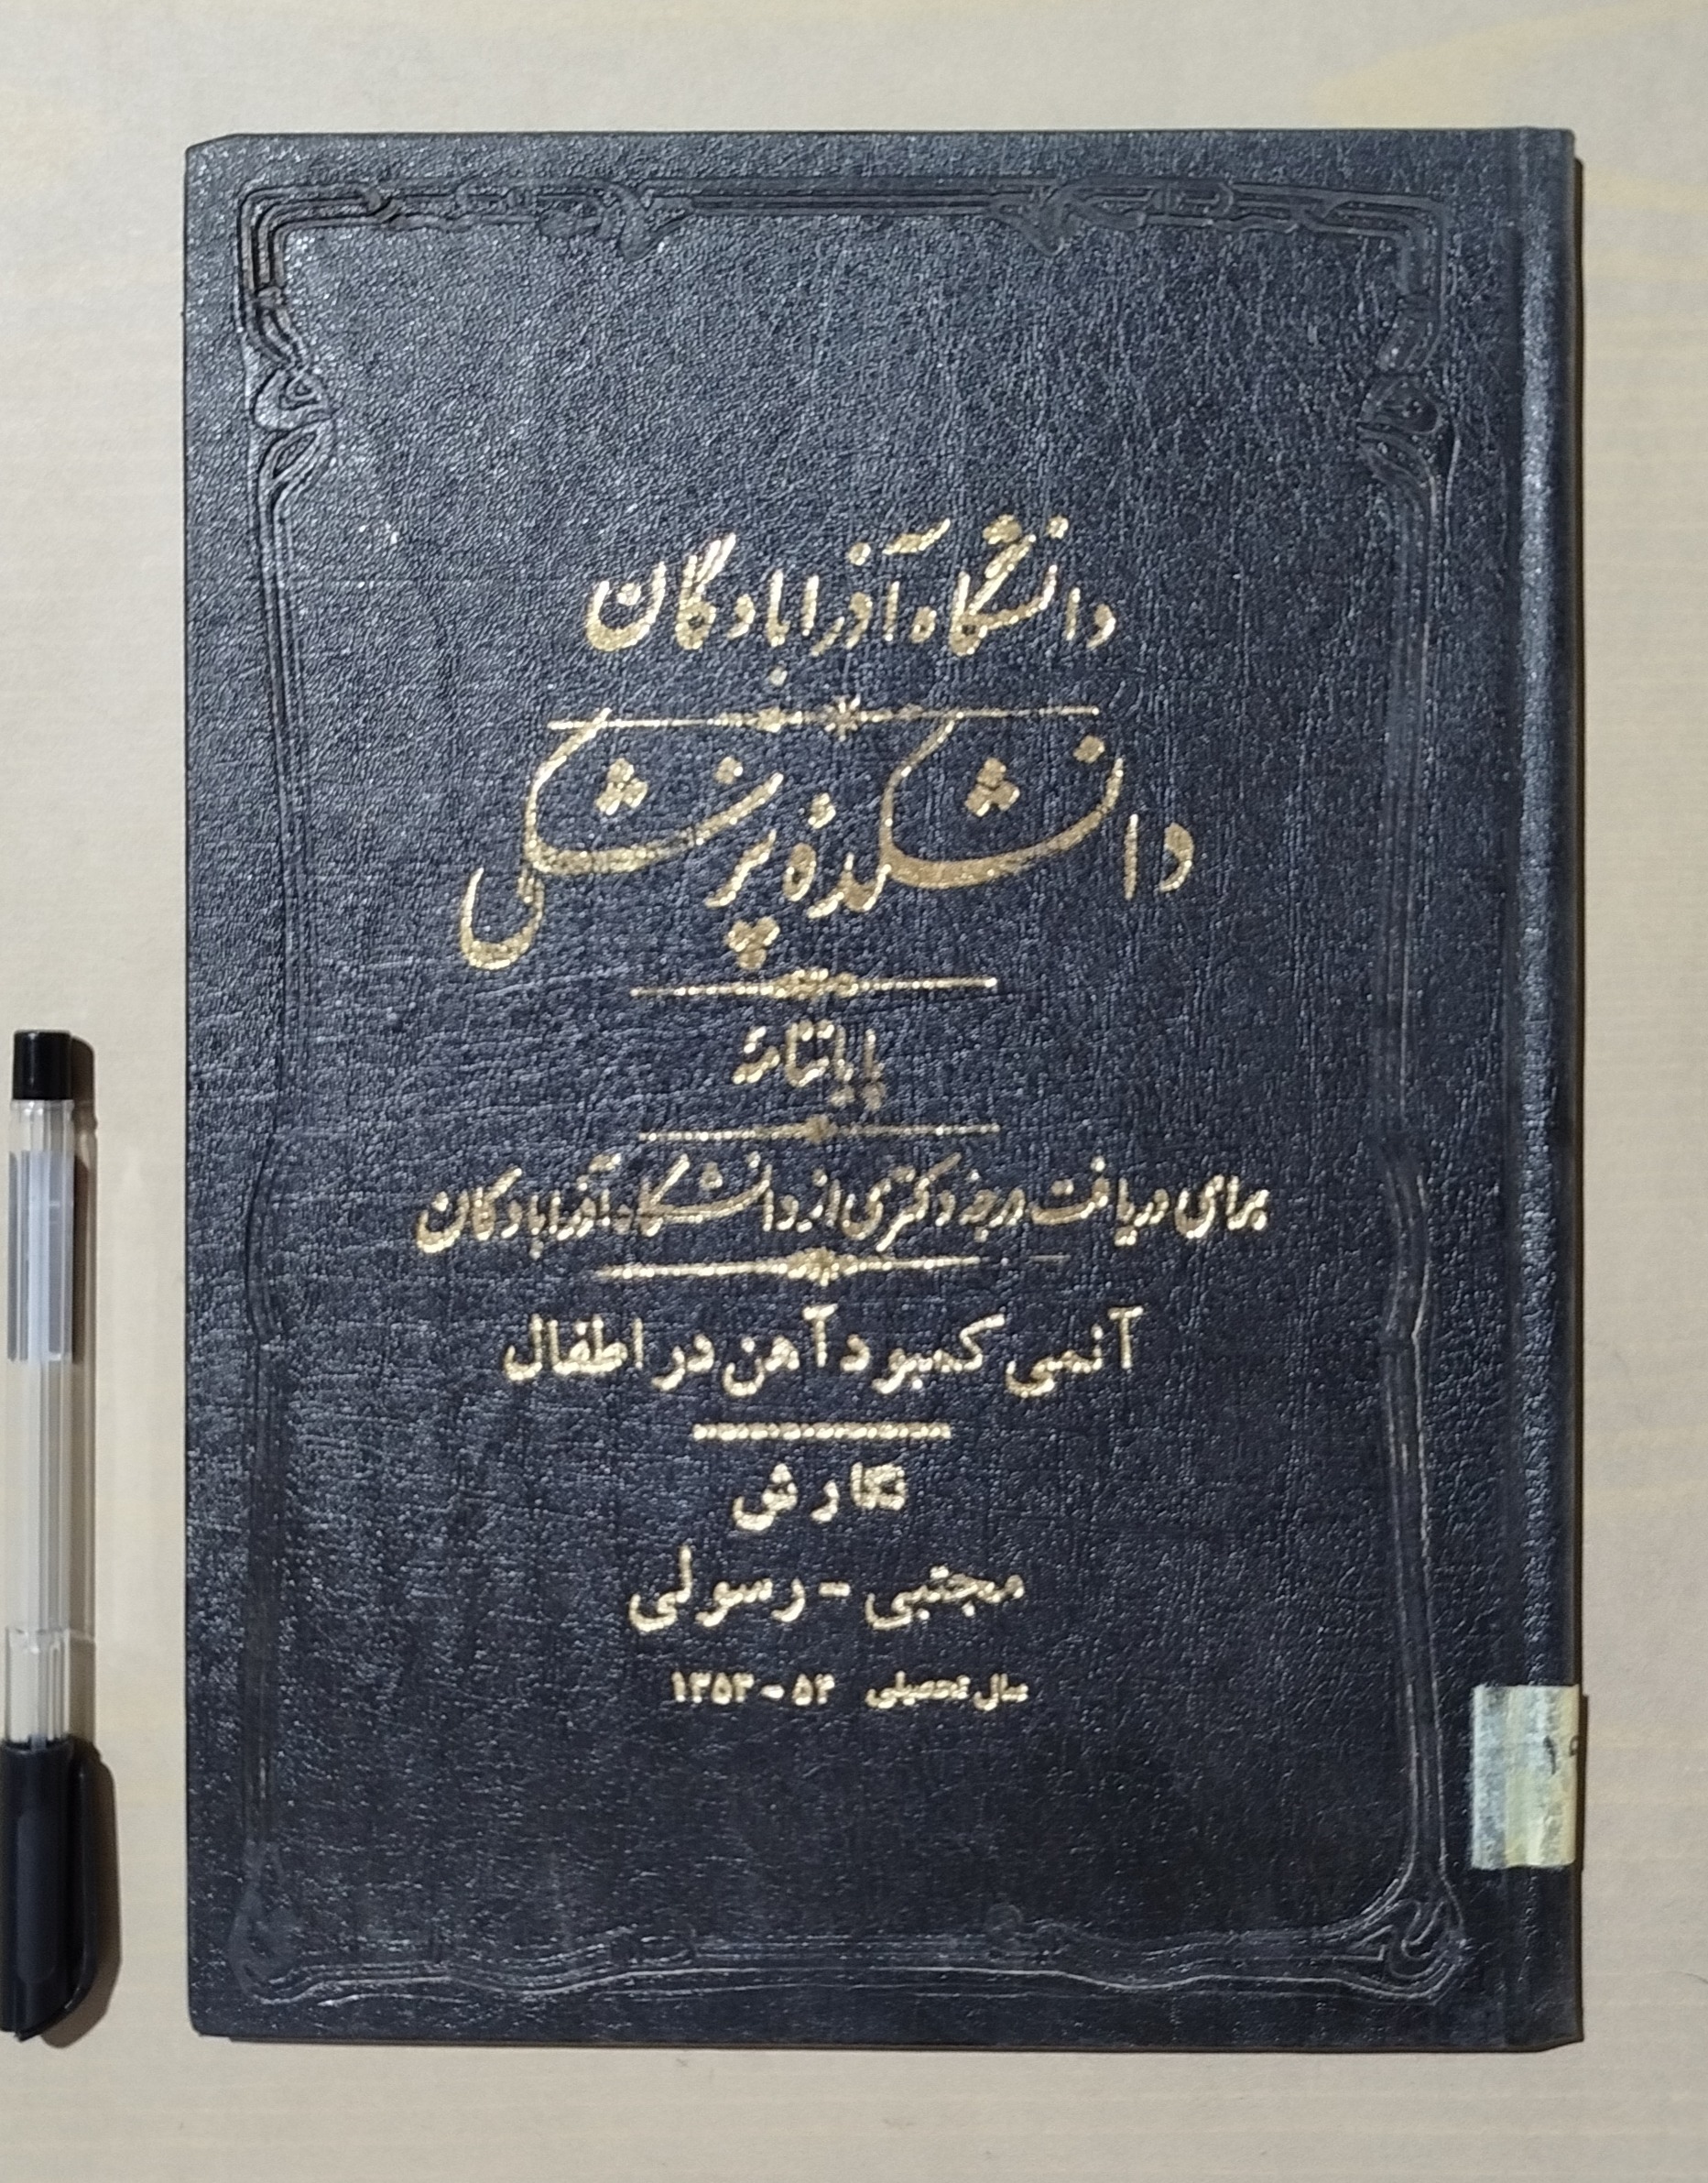 دانشگاه آذرابادگان
دانشکدهٔ پزشکی
پایاننامهٔ
برای دریافت درجهٔ دکتری از دانشگاه آذرابادگان
آنمی کمبود آهن در اطفال
نگارش
مجتبی - رسولی
سال تحصیلی ۵۴ - ۱۳۵۳